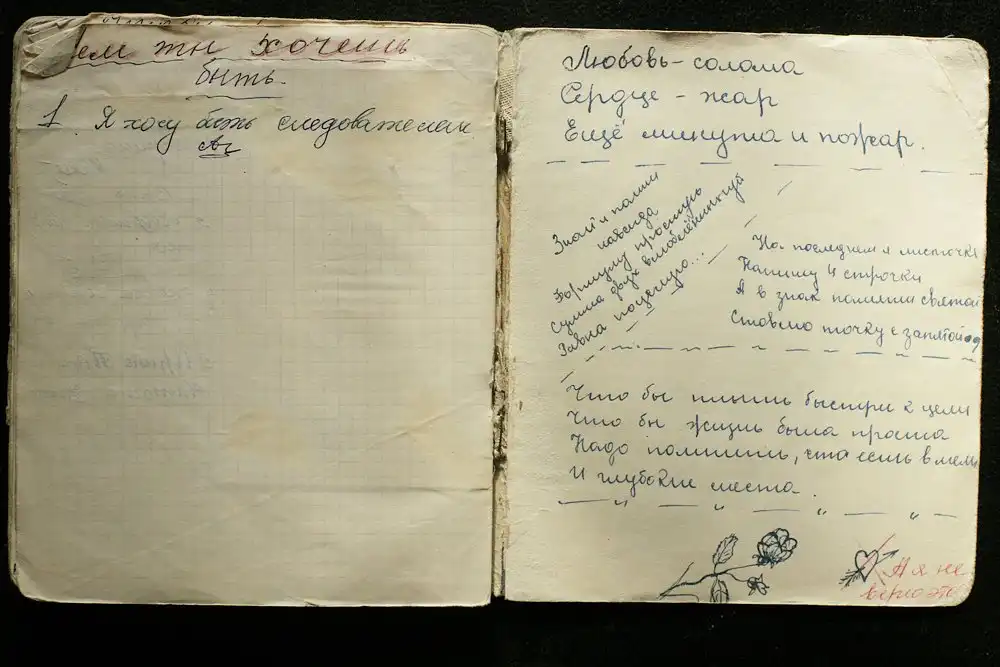 ем ты хочешь
быть.
1. Я хочу быть следователем
Любовь - солома
Сердце - жар
Ещё минута и пожар.
Знай и помни
навсегда
Формулу простую
Сумма двух влюблённых
Равна поцелую...
На последнем я листочке
Напишу 4 строчки
Я в знак памяти святой
Ставлю точку с запятой
Что бы плыть быстрее к цели
Что бы жизнь была проста
Надо помнить, что есть в мели
И глубокие места.
А я не
верю эт